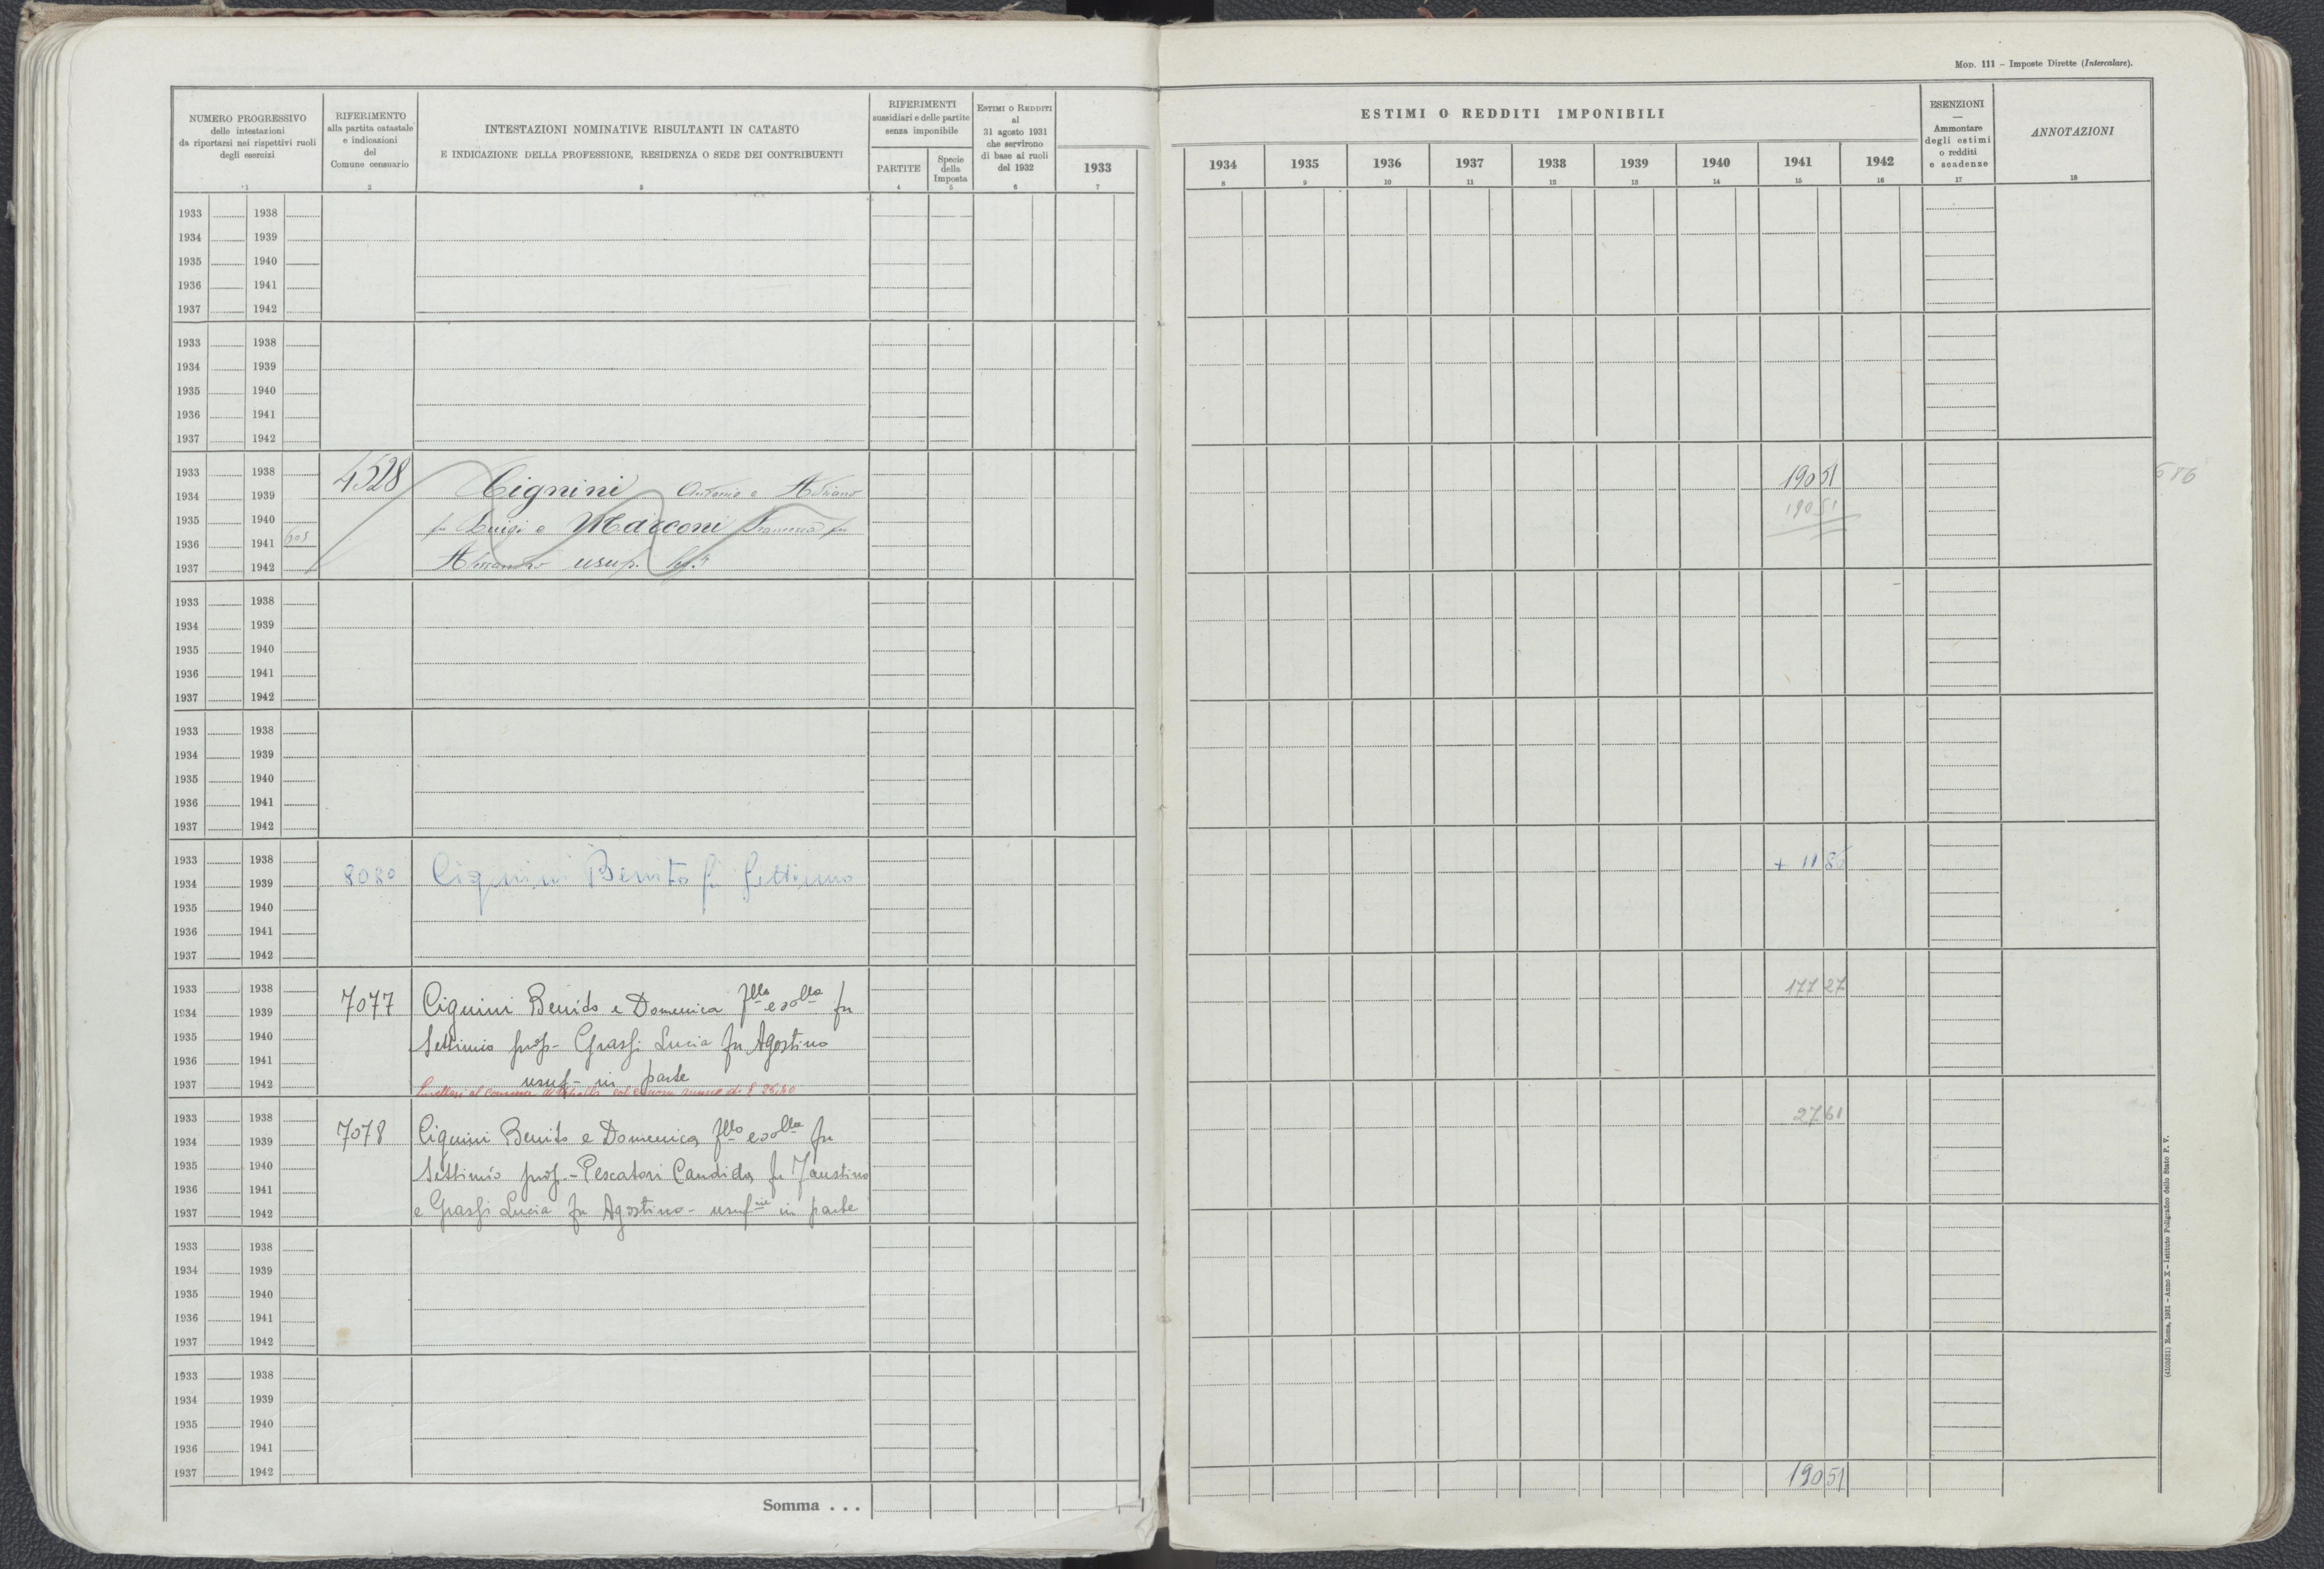 MOD. 111 – Imposte Dirette (Intercalare).
NUMERO PROGRESSIVO
delle intestazioni
da riportarsi nei rispettivi ruoli
degli esercizi
1
RIFERIMENTO
alla partita catastale
e indicazioni
del
Comune censuario
2
INTESTAZIONI NOMINATIVE RISULTANTI IN CATASTO
E INDICAZIONE DELLA PROFESSIONE, RESIDENZA O SEDE DEI CONTRIBUENTI
3
RIFERIMENTI
sussidiari e delle partite
senza imponibile
PARTITE
4
Specie
della
Imposta
5
ESTIMI O REDDITI
al
31 agosto 1931
che servirono
di base ai ruoli
del 1932
6
1933
7
ESTIMI O REDDITI IMPONIBILI
1934 1935 1936 1937 1938 1939 1940 1941 1942
8 9 10 11 12 13 14 15 16
ESENZIONI
—
Ammontare
degli estimi
o redditi
e scadenze
17
ANNOTAZIONI
18
1933 1938
1934 1939
1935 1940
1936 1941
1937 1942
1933 1938
1934 1939
1935 1940
1936 1941
1937 1942
1933 1938 4528 190 51
1934 1939 Cignini Antonio e Adriano
1935 1940 fu Luigi e Marconi Francesca fu 190 51
1936 1941
1937 1942 usuf.
1933 1938
1934 1939
1935 1940
1936 1941
1937 1942
1933 1938
1934 1939
1935 1940
1936 1941
1937 1942
1933 1938 + 11 86
1934 1939 8080 Cignini Benito fu Settimio
1935 1940
1936 1941
1937 1942
1933 1938 177 27
1934 1939 7077 Cignini Benito e Domenica flło e sollā fu
1935 1940 Settimio prop- Grassi Lucia fu Agostino
1936 1941
1937 1942 usuf- in parte
1933 1938 27 61
1934 1939 7078 Cignini Benito e Domenica flło e sollā fu
1935 1940 Settimio prop.- Pescatori Candida fu Faustino
1936 1941
1937 1942 e Grassi Lucia fu Agostino - usuf in parte
1933 1938
1934 1939
1935 1940
1936 1941
1937 1942
1933 1938
1934 1939
1935 1940
1936 1941
1937 1942
190 51
Somma . . .
(4103581) Roma, 1931 – Anno X – Istituto Poligrafico dello Stato P. V.